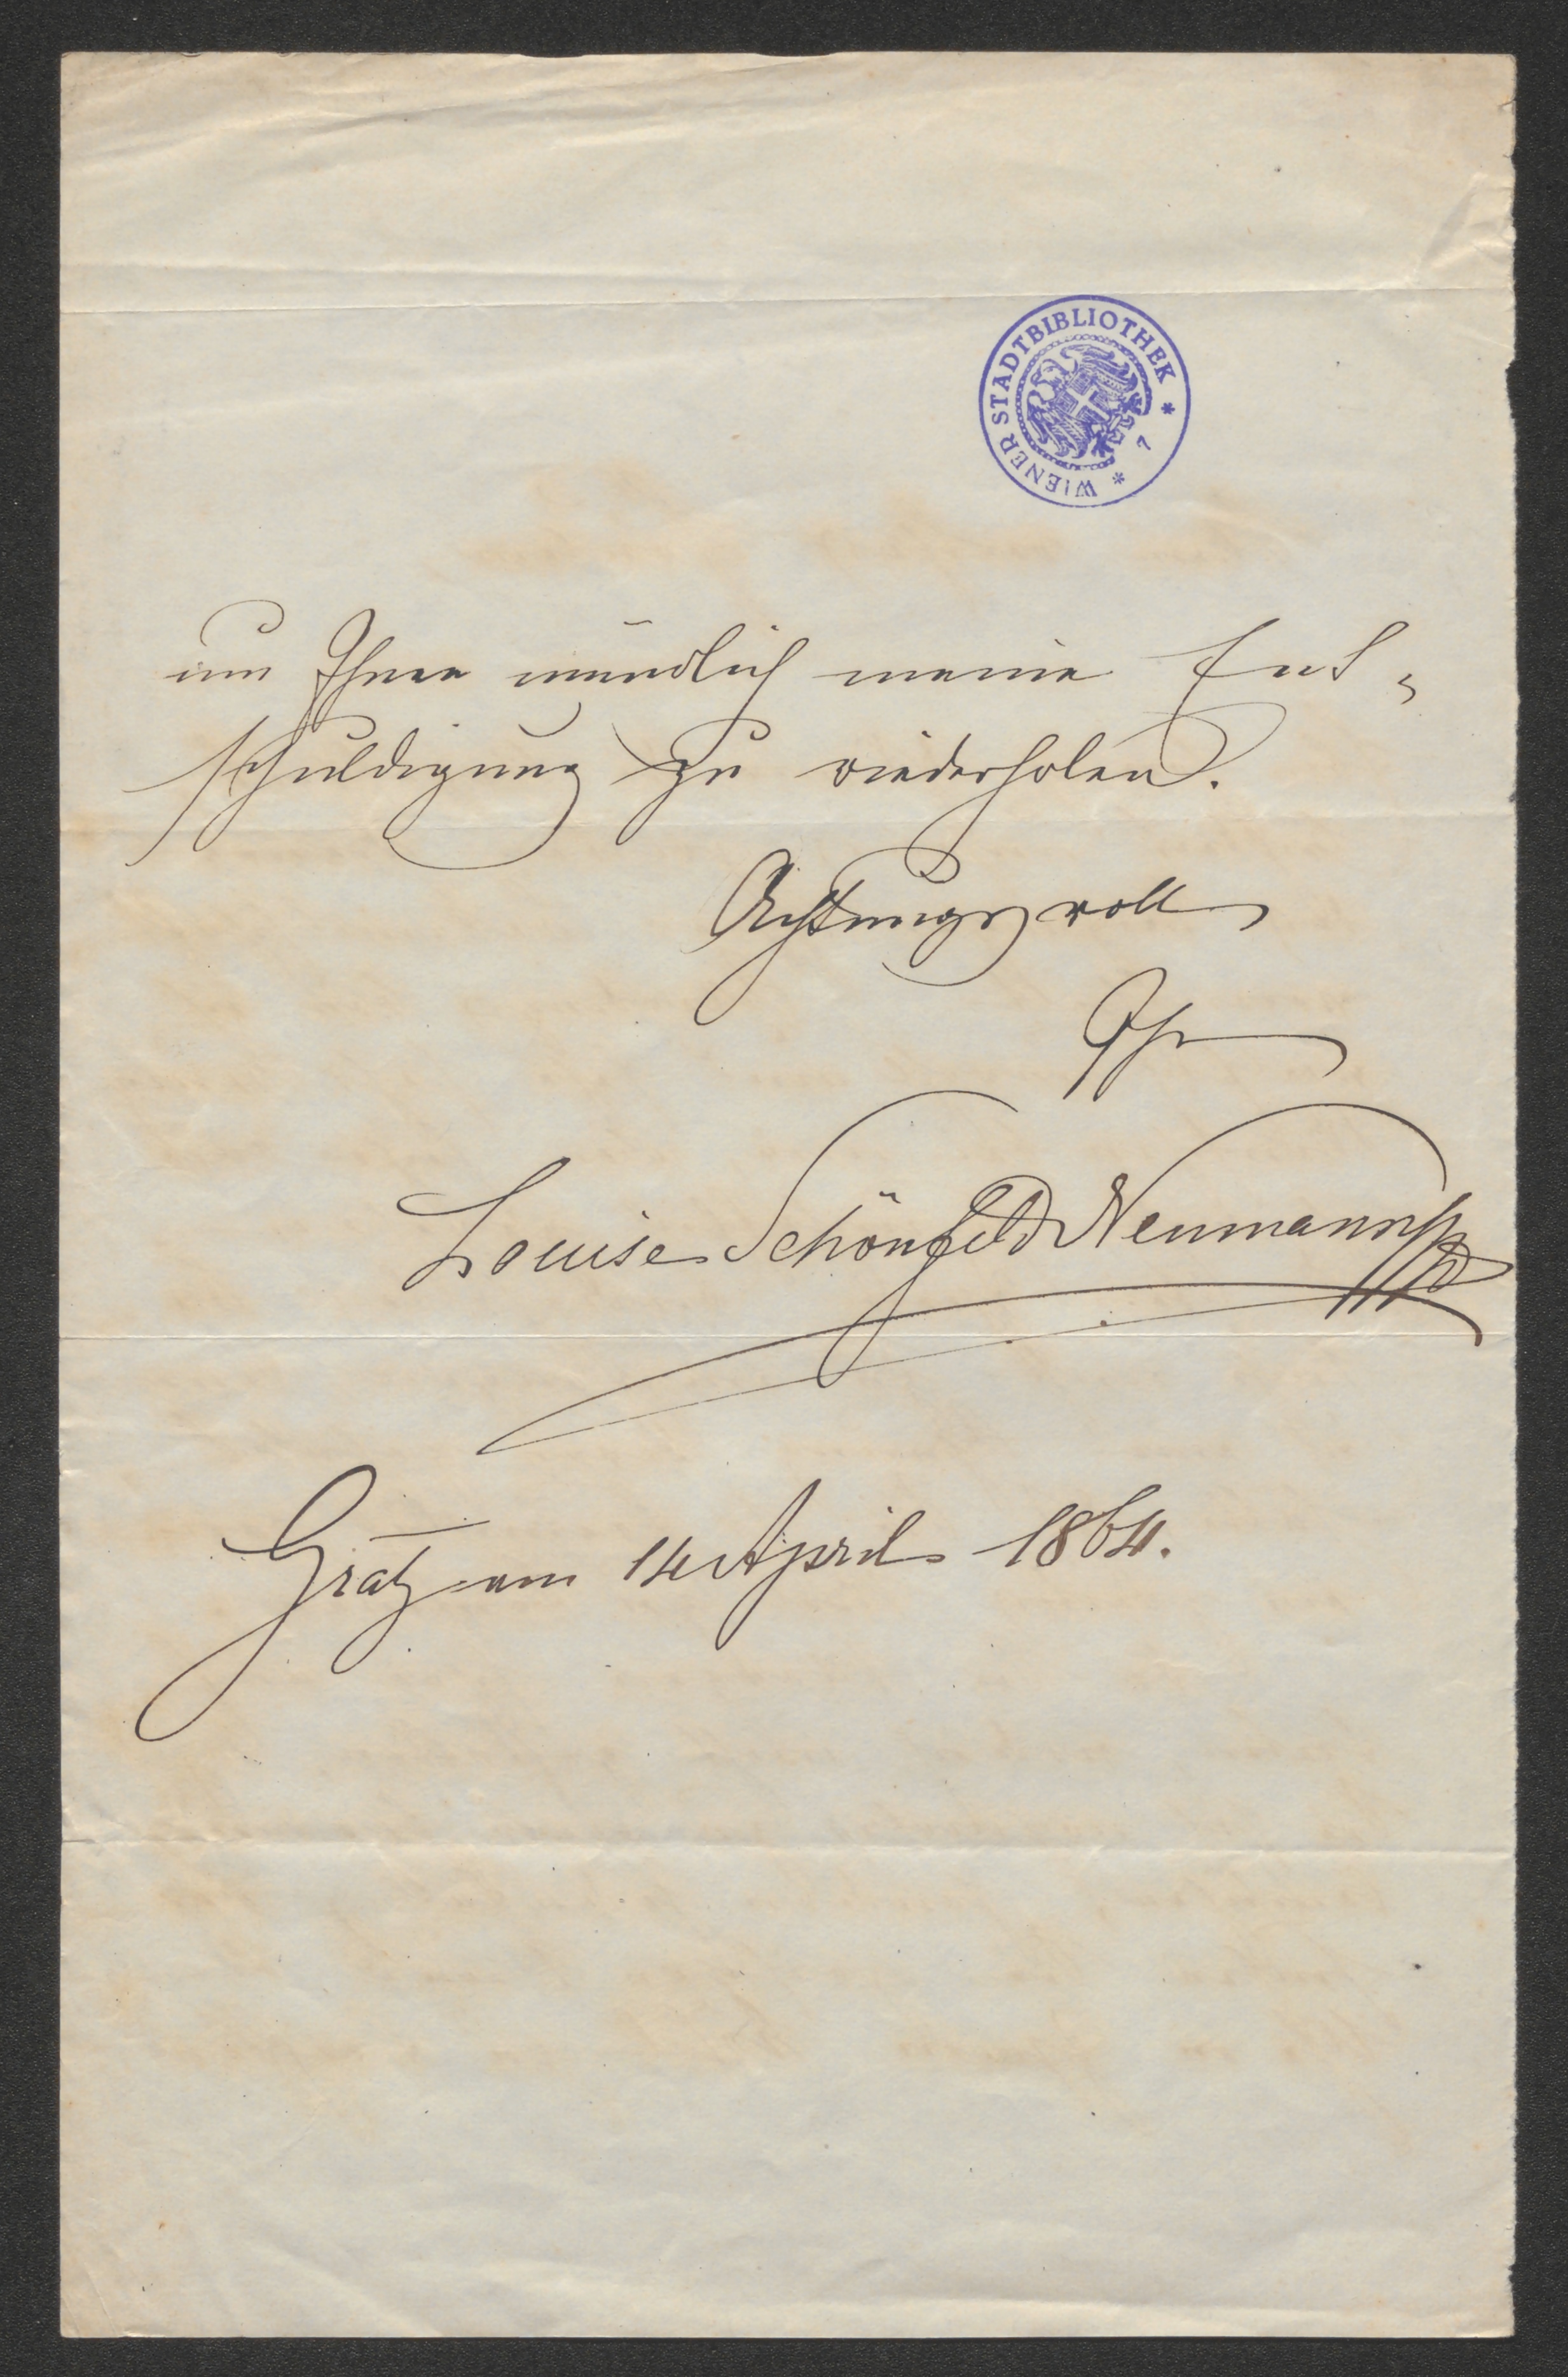 WIENER STADTBIBLIOTHEK * 7 *
um Ihnen mündlich meine Ent-
schuldigung zu wiederholen.
Achtungsvoll
Ihre
Louise Schönfeld Neumann
Gratz am 14 April 1864.